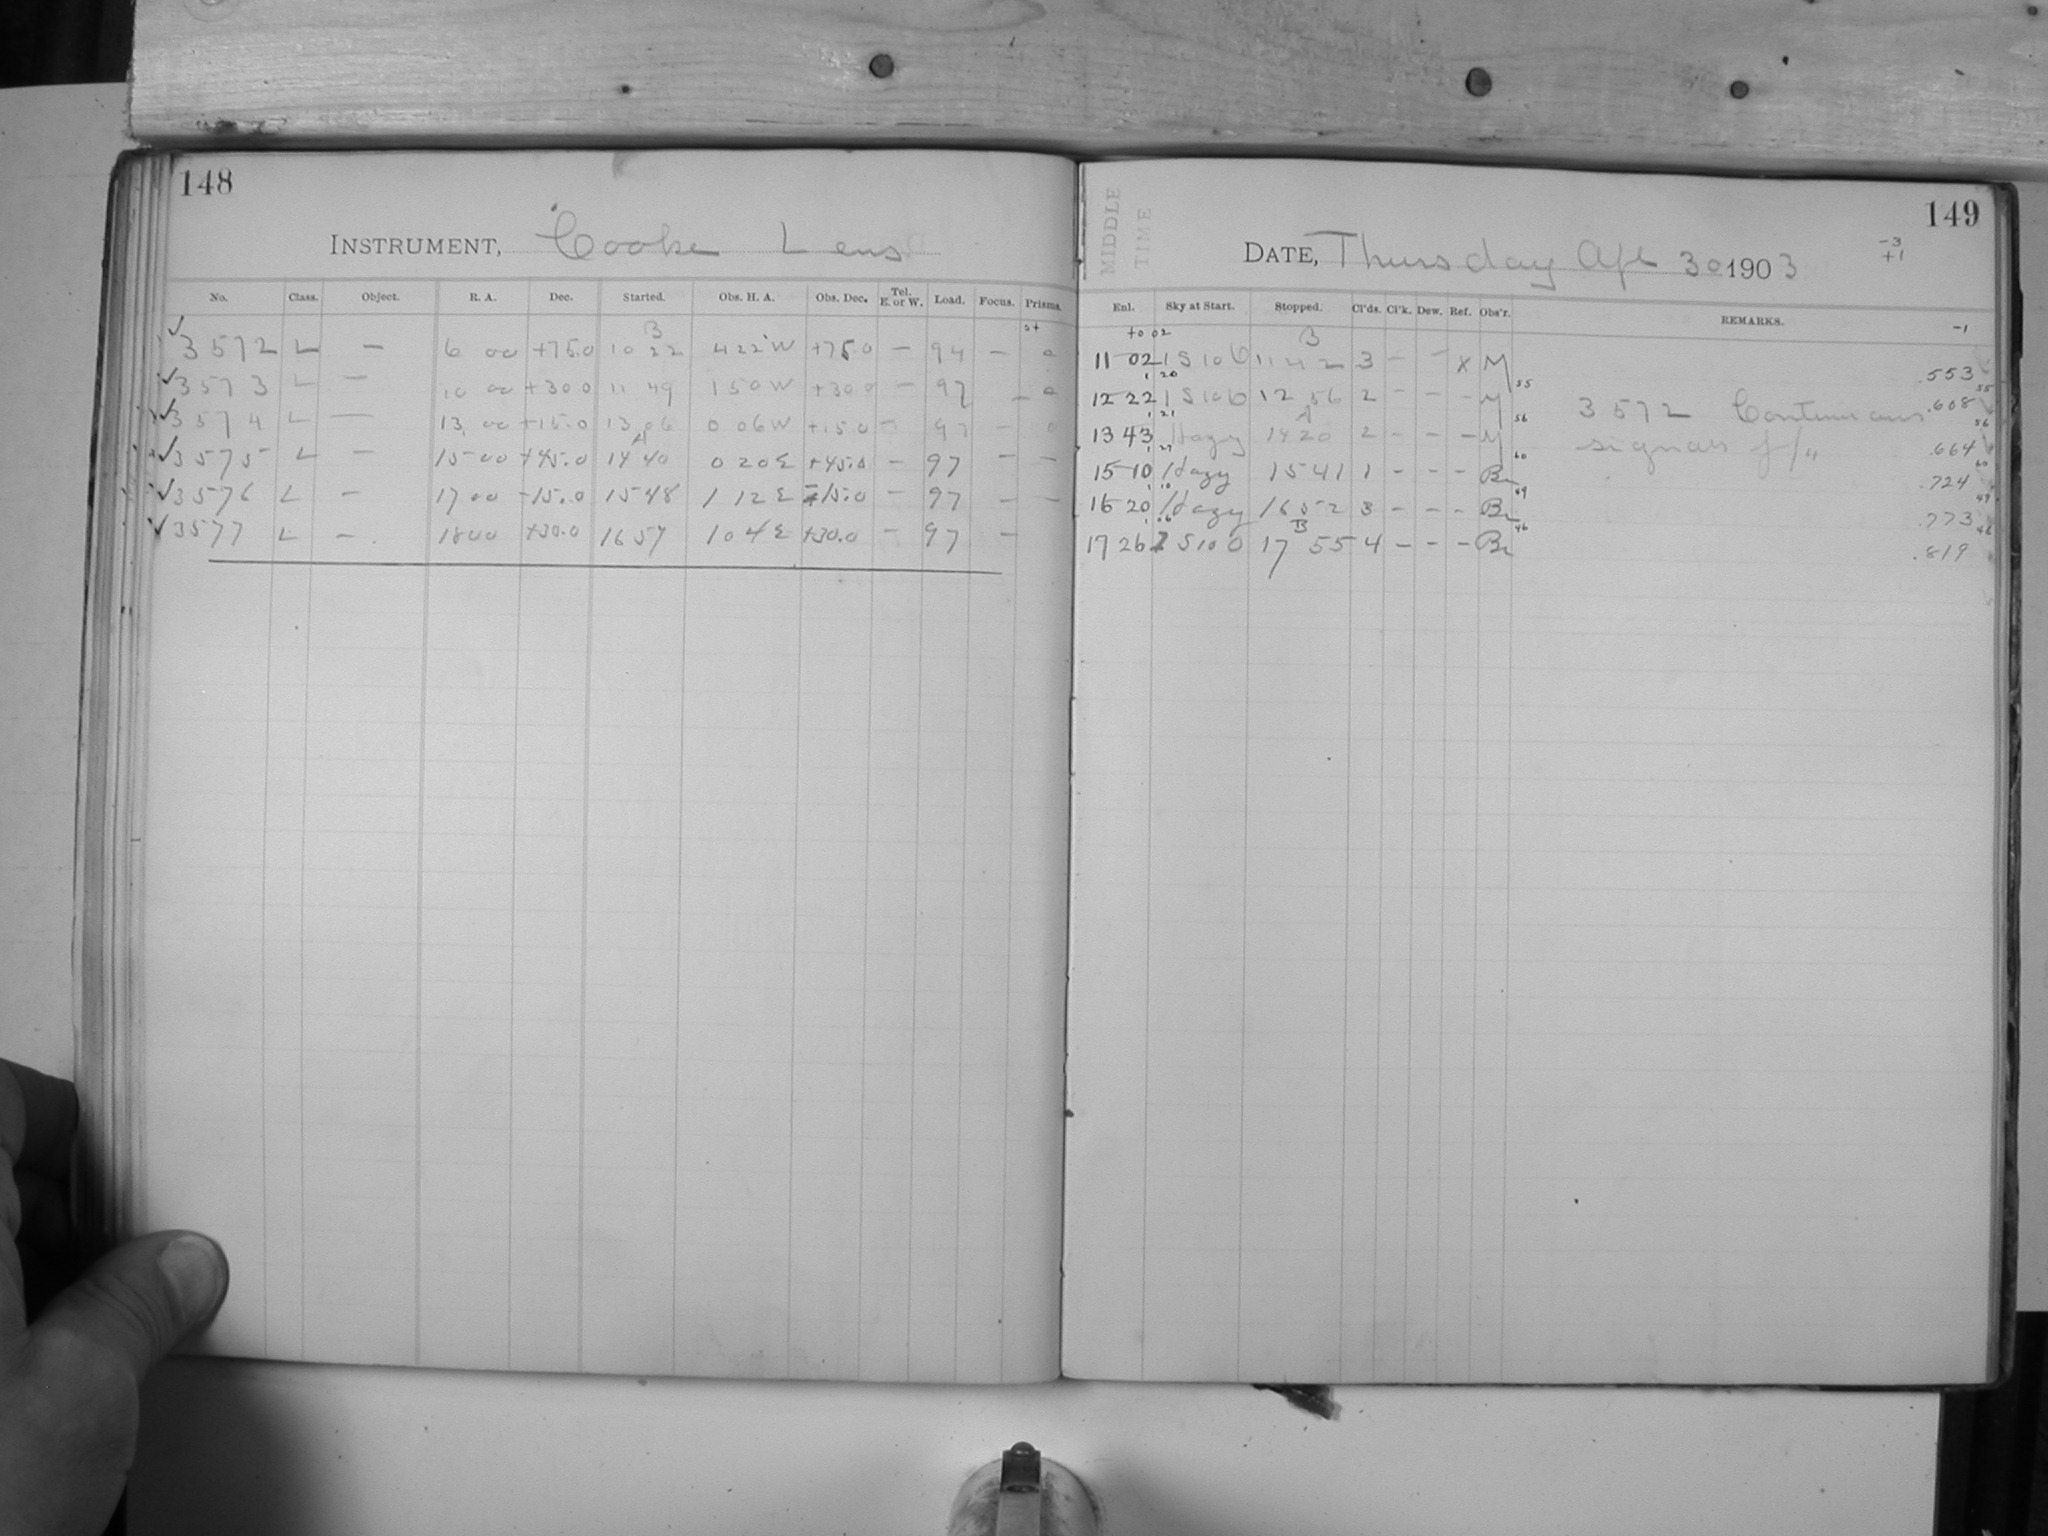 148
INSTRUMENT, Cooke Lens
No. Class. Object. R. A. Dec. Started. Obs. H. A. Obs. Dec. Tel. E. or W. Load. Focus. Prisms.
B
3572 L — 6 00 +75.0 10 22 4 22 W +75.0 — 94 —
3573 L — 10 00 +30.0 11 49 1 50 W +30.0 — 97 —
3574 L — 13 00 +15.0 13 06 0 06 W +15.0 — 97 —
A
3575 L — 15 00 +45.0 14 40 0 20 E +45.0 — 97 — —
3576 L — 17 00 -15.0 15 48 1 12 E -15.0 — 97 — —
3577 L — 18 00 +30.0 16 57 1 04 E +30.0 — 97 —
149
MIDDLE
TIME
DATE, Thursday Apl 30 1903
-3
+1
Enl. Sky at Start. Stopped. Cl'ds. Cl'k. Dew. Ref. Obs'r. REMARKS.
+0 02 B -1
11 02 1 S 10 0 11 42 3 — — X M .553
1 20 55 55
12 22 1 S 10 0 12 56 2 — — — M 3572 Continuous .608
1 21 A 56 56
13 43 Hazy 14 20 2 — — — M signals f/4 .664
1 27 60 60
15 10 Hazy 15 41 1 — — — Br .724
1 10 49 49
16 20 Hazy 16 52 3 — — — Br .773
1 06 B 46 46
17 26 S 10 0 17 55 4 — — — Br .819